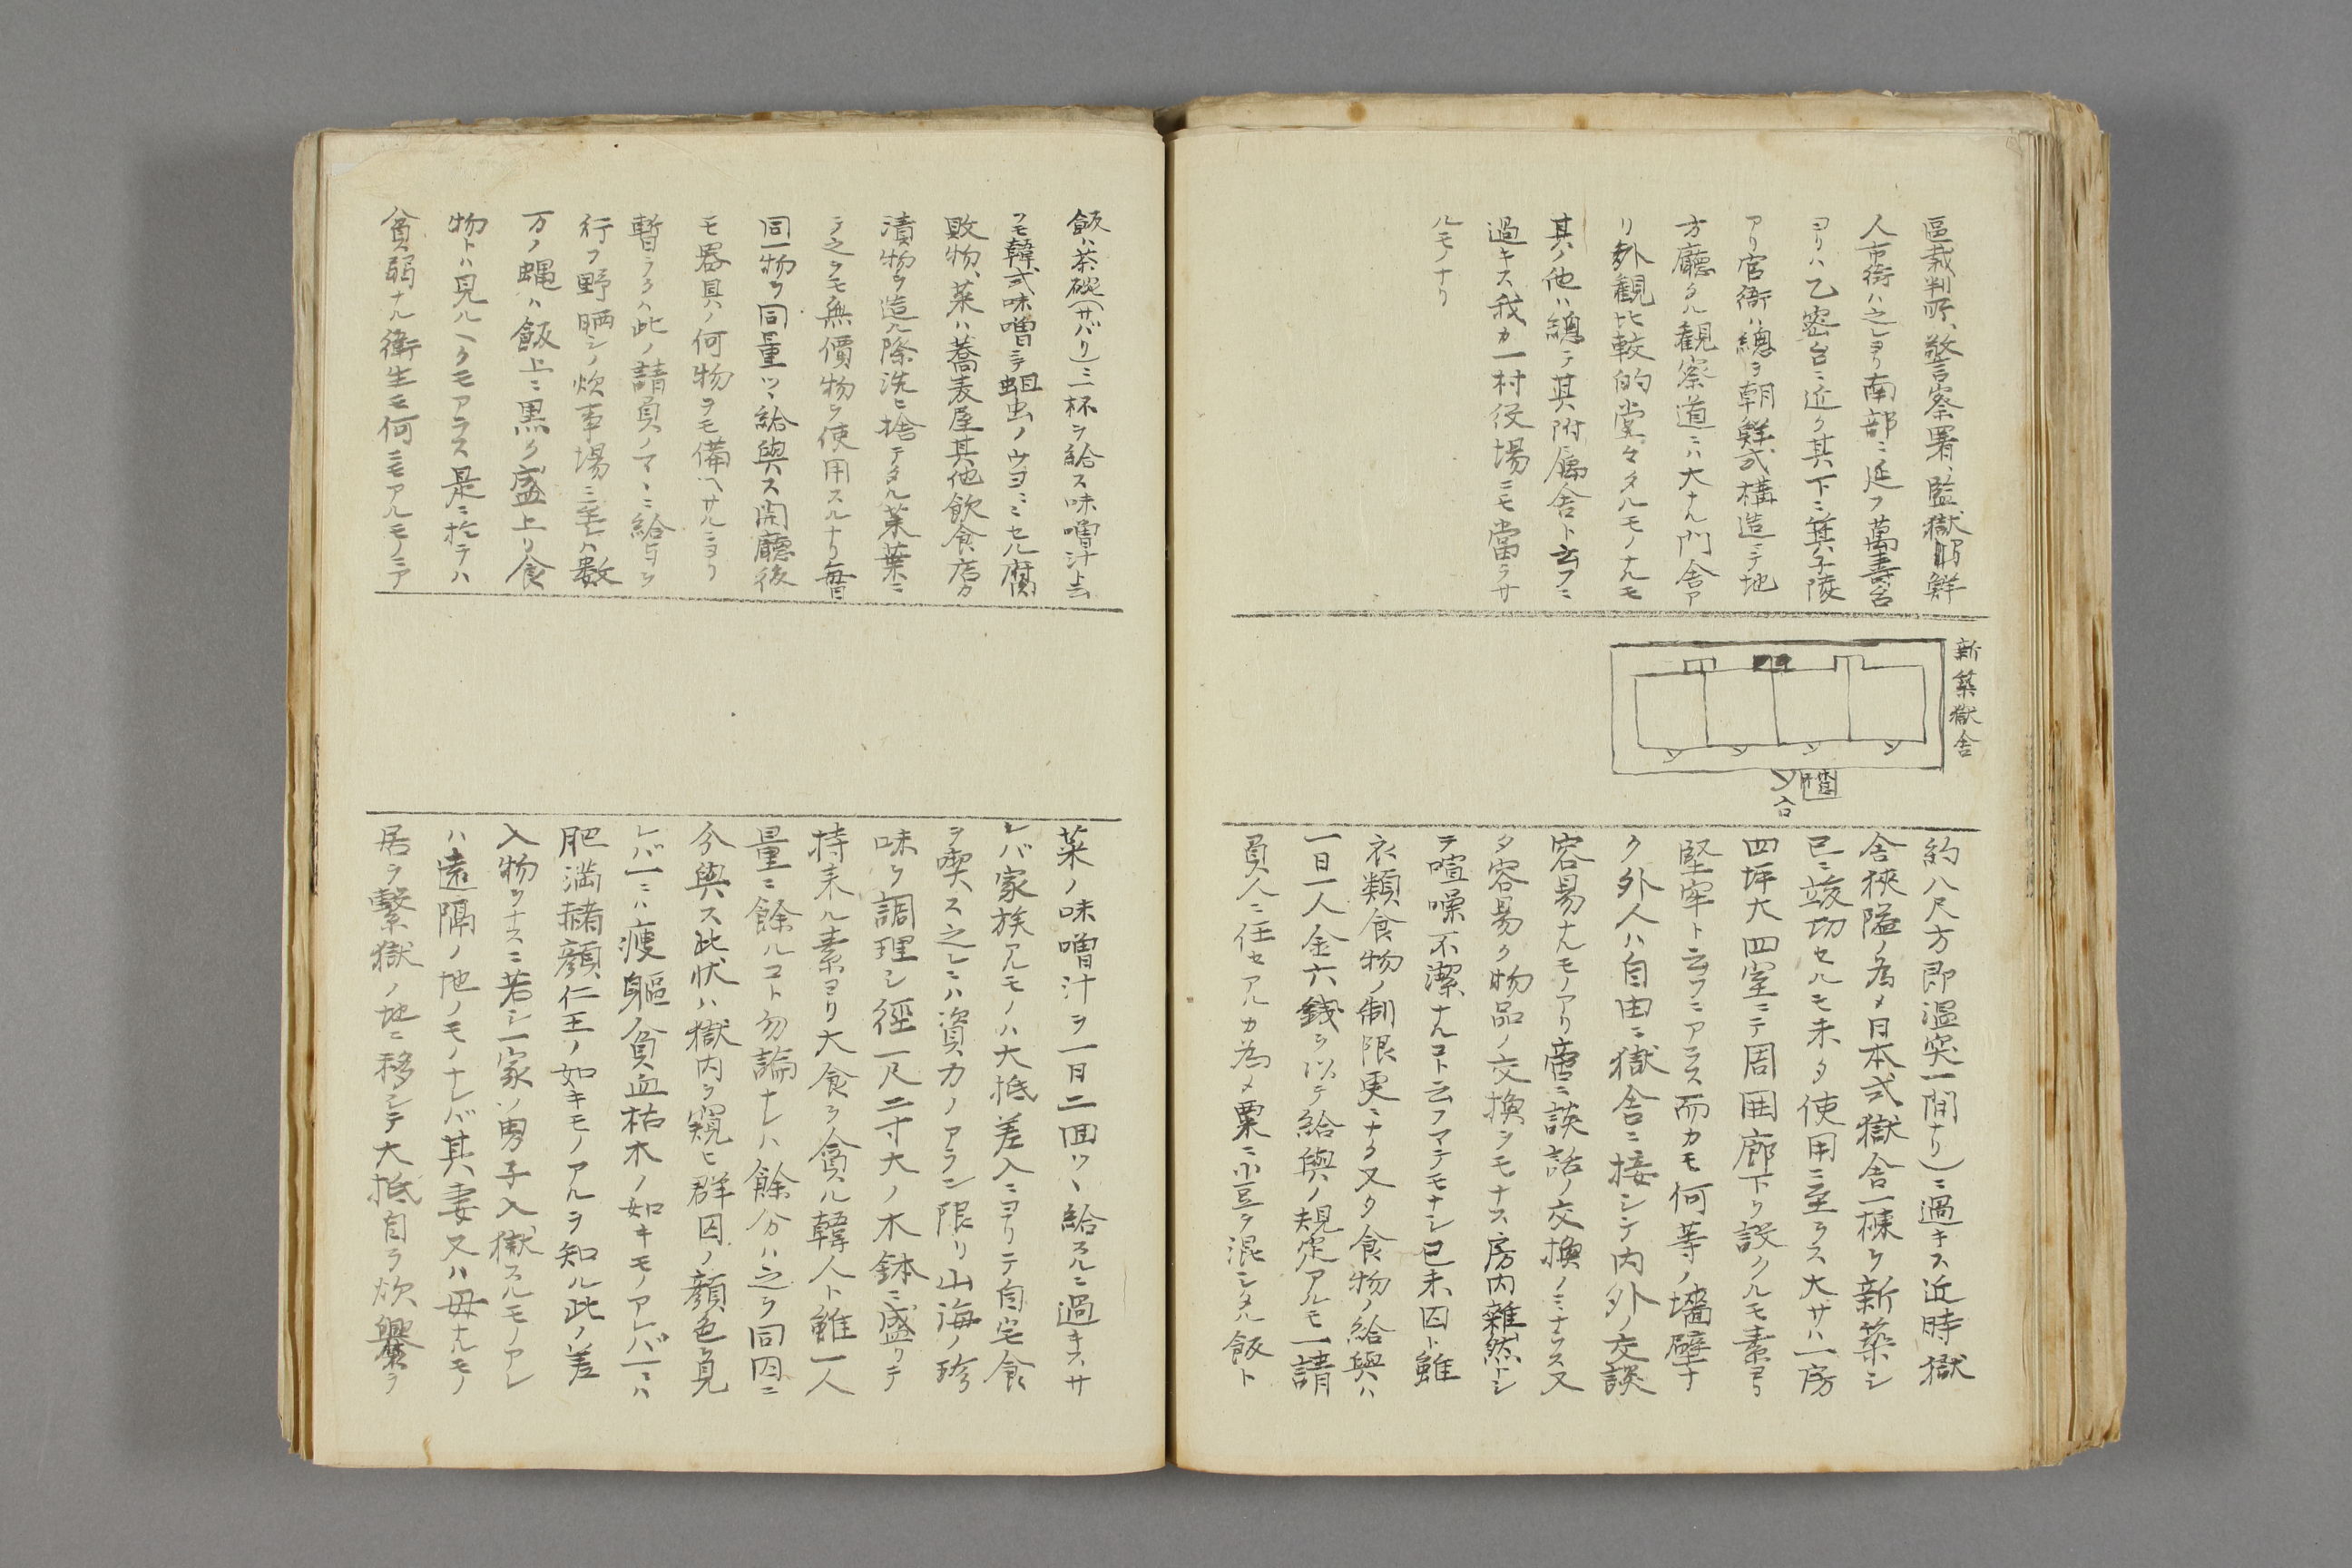 區裁判所、警察署、監獄、朝鮮
人市街ハ之レヨリ南部ニ延フ萬壽台
ヨリハ乙密台ニ近ク其下ニ箕子陵
アリ官衙ハ總ヲ朝鮮式構造ニテ地
方廳タル観察道ニハ大ナル門舎ア
リ外観比較的堂々タルモノナルモ
其ノ他ハ總テ其附属舎ト云フニ
過キス我カ一村役場ニモ當ラサ
ルモノナリ
新築獄舎
約八尺方即温突一間ナリ)ニ過キス近時獄
舎狹隘ノ為メ日本式獄舎一棟ヲ新築シ
已ニ竣功セルモ未タ使用ニ至ラス大サハ一房
四坪大四室ニテ周囲廊下ヲ設クルモ素ヨリ
堅牢ト云フニアラス而カモ何等ノ墻壁ナ
ク外人ハ自由ニ獄舎ニ接シテ内外ノ交談
容易ナルモノアリ啻ニ談話ノ交換ノミナラス又
タ容易ク物品ノ交換ヲモナス房内雑然トシ
テ喧噪不潔ナルコト云フマテモナシ已未囚ト雖
衣類食物ノ制限更ニナク又タ食物ノ給與ハ
一日一人金六銭ヲ以テ給與ノ規定アルモ一請
負人ニ任セアルカ為メ粟ニ小豆ヲ混シタル飯ト
飯ハ茶碗(サバリ)ニ一杯ヲ給ス味噌汁ト云
フモ韓式味噌ニテ蛆虫ノウヨミミセル腐
敗物、菜ハ蕎麦屋其他飲食店カ
漬物ヲ造ル際洗ヒ捨テタル菜葉ニ
テ之ヲモ無價物ヲ使用スルナリ毎日
同一物ヲ同量ツヽ給與ス開廳後
モ器具ノ何物ヲモ備ヘサルニヨリ
暫ラクハ此ノ請負ノマヽニ給与ヲ
行フ野晒シノ炊事場ニ至レハ数
万ノ蝿ハ飯上ニ黒ク盛上リ食
物トハ見ルヘクモアラス是ニ於テハ
貧弱ナル衛生モ何ニモアルモノニア
菜ノ味噌汁ヲ一日二回ツヽ給スルニ過キスサ
レバ家族アルモノハ大抵差入ニヨリテ自宅食
ヲ喫ス之レニハ資力ノアラン限リ山海ノ珍
味ヲ調理シ徑一尺二寸大ノ木鉢ニ盛リテ
持来ル素ヨリ大食ヲ貪ル韓人ト雖一人
量ニ餘ルコト勿論ナレハ餘分ハ之ヲ同囚ニ
分與ス此状ハ獄内ヲ窺ヒ群囚ノ顔色ヲ見
レバ一ニハ痩軀貧血枯木ノ如キモノアレバ一ニハ
肥満赭顔仁王ノ如キモノアルヲ知ル此ノ差
入物ヲナスニ若シ一家ノ男子入獄スルモノアレ
ハ遠隔ノ地ノモノナレバ其妻又ハ母ナルモノ
居ヲ繋獄ノ地ニ移シテ大抵自ラ炊爨ヲ